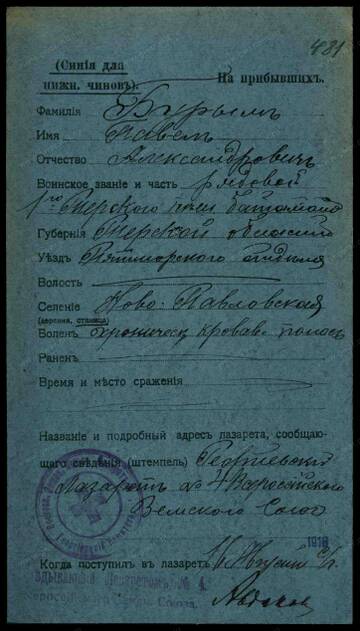 431
(Синія для
нижн. чиновъ).
На прибывшихъ.
Фамилія Бурымъ
Имя Павелъ
Отчество Александровичъ
Воинское званіе и часть рядовой
1го Терского
Губернія Терской области
Уѣздъ Пятигорского отдѣла
Волость
Селеніе Ново-Павловская
(деревня, станица)
Болен хроническ. кровав. понос
Ранен
Время и мѣсто сраженія
Названіе и подробный адресъ лазарета, сообщаю-
щаго свѣдѣнія (штемпель) Георгіевскій
Лазаретъ №4 Всеросійского
Земского Союз
191
Когда поступилъ въ лазаретъ 16
Лазаретомъ № 4
Союза.